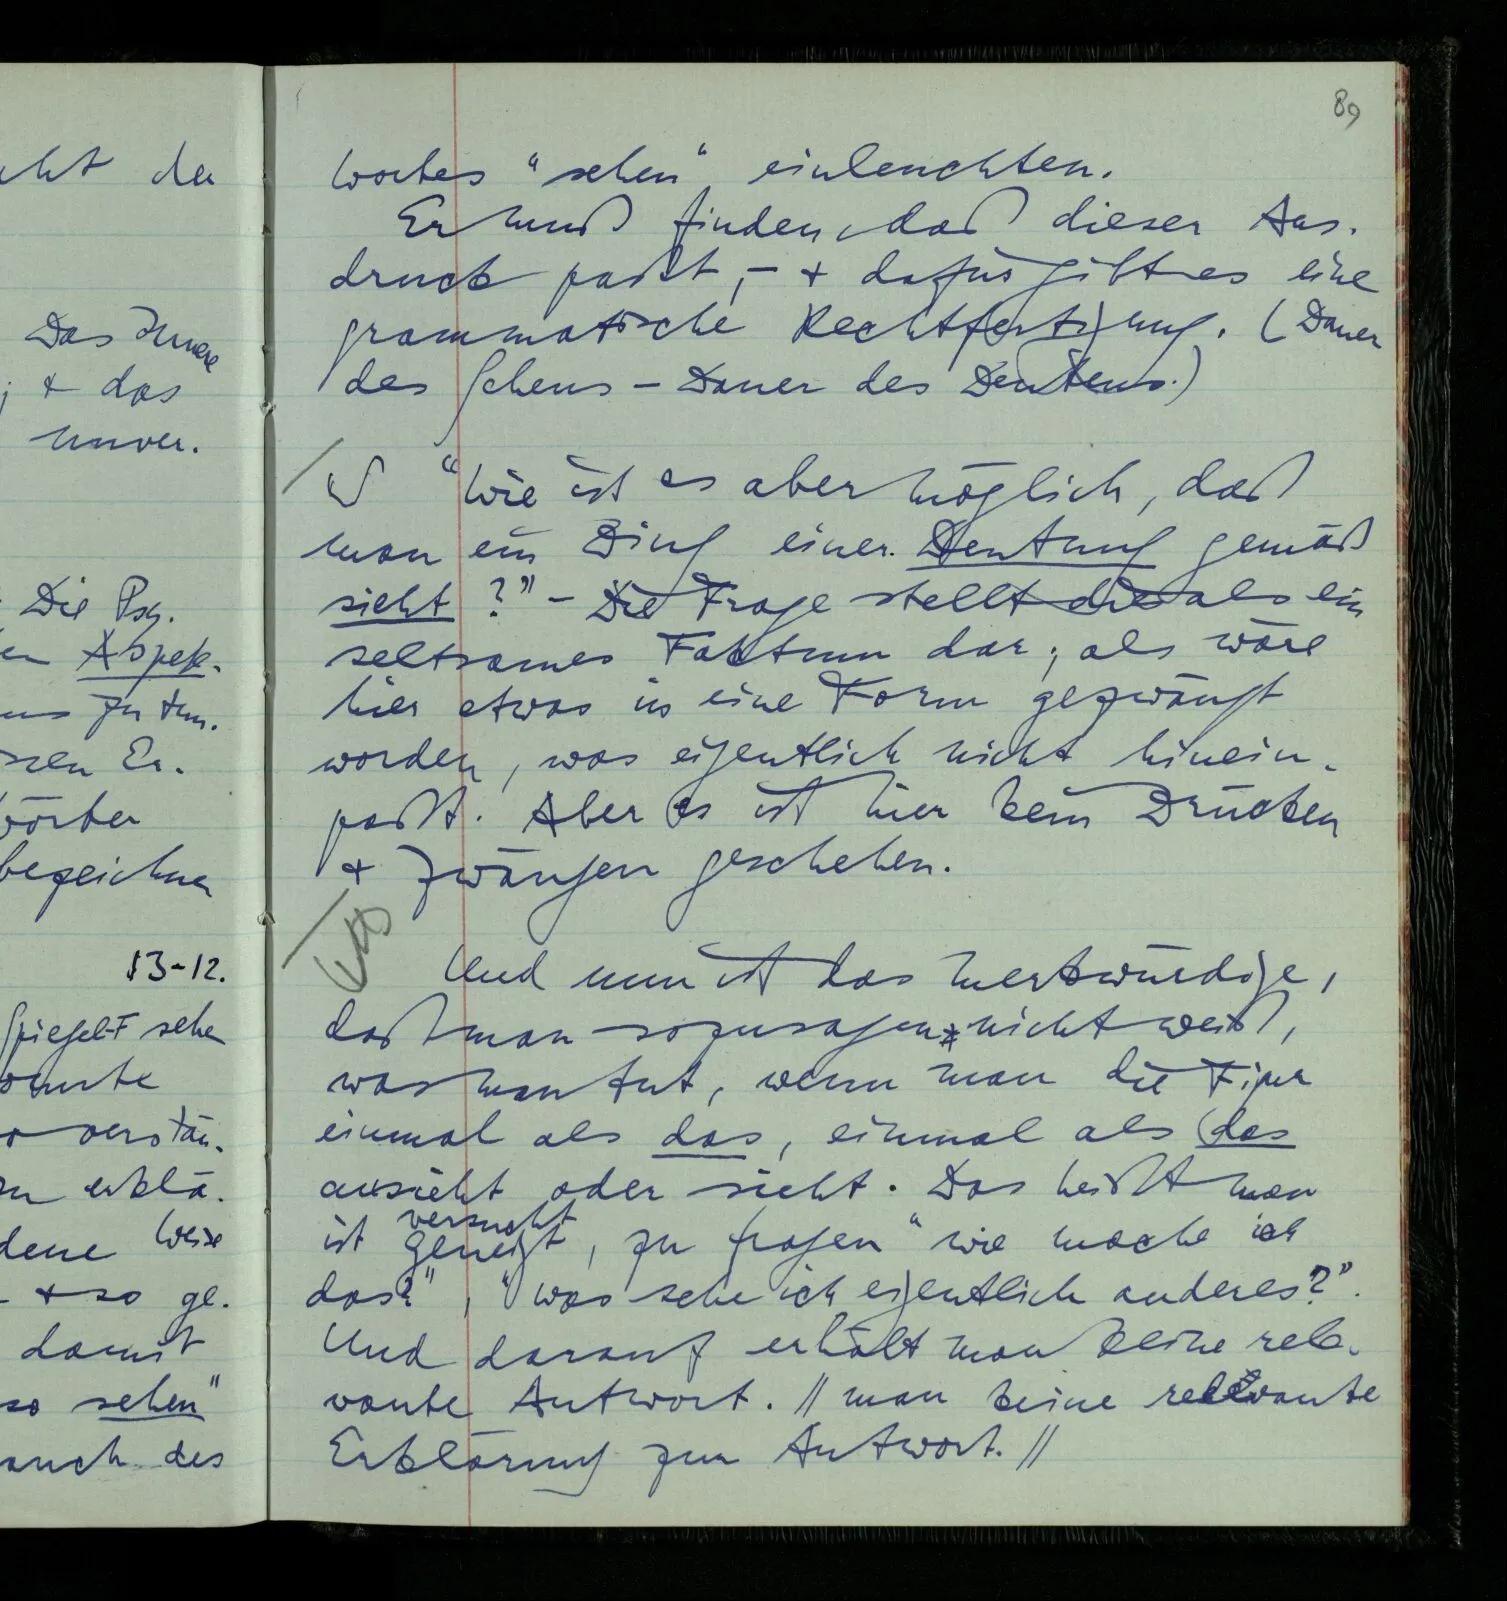 cht der
Das Innere
; + das
unver-
Die Psy.
en Aspek-
uns zu tun.
sen Er-
wörter
bezeichnen
13-12.
Spiegel-F sehen
onnte
o verstän-
zu erklä-
dene Weise
- + so ge-
damit
so sehen"
auch des
89
Wortes "sehen" einleuchten.
Er muß finden, daß dieser Aus-
druck paßt, – + dafür gibt es eine
grammatische Rechtfertigung. (Dauer
des Sehens – Dauer des Deutens.)
S "Wie ist es aber möglich, daß
man ein Ding einer Deutung gemäß
sieht?" – Die Frage stellt dies als ein
seltsames Faktum dar; als wäre
hier etwas in eine Form gezwängt
worden, was eigentlich nicht hinein-
paßt. Aber es ist hier kein Drücken
+ Zwängen geschehen.
Und nun ist das Merkwürdige,
daß man sozusagen nicht weiß,
was man tut, wenn man die Figur
einmal als das, einmal als das
ansieht oder sieht. Das heißt man
versucht
ist geneigt, zu fragen "wie mache ich
das?", "was sehe ich eigentlich anderes?".
Und darauf erhält man keine rele-
vante Antwort. // man keine relevante
Erklärung zur Antwort. //